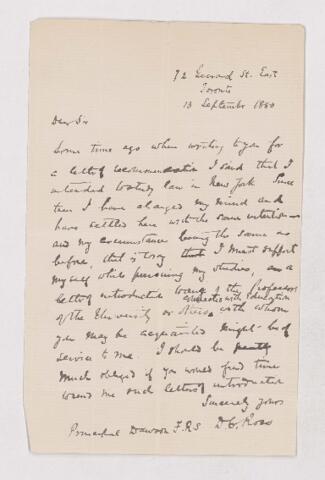 72 Gerrard St. East
Toronto
13 September 1880
Dear Sir
Some time ago when writing to you for
a letter of recommendation I said that I
intended to study law in New York. Since
then I have changed my mind and
have settled here with the same intention
and my circumstances being the same as
before, that is to say that I must support
myself while pursuing my studies, a
letter of introduction to any of the professors
of the University or others with whom
connection with Education
you may be acquainted might be of
service to me. I should be
much obliged if you would find time
to send me such letter of introduction
Sincerely yours
D C. Ross
Principal Dawson F.R.S